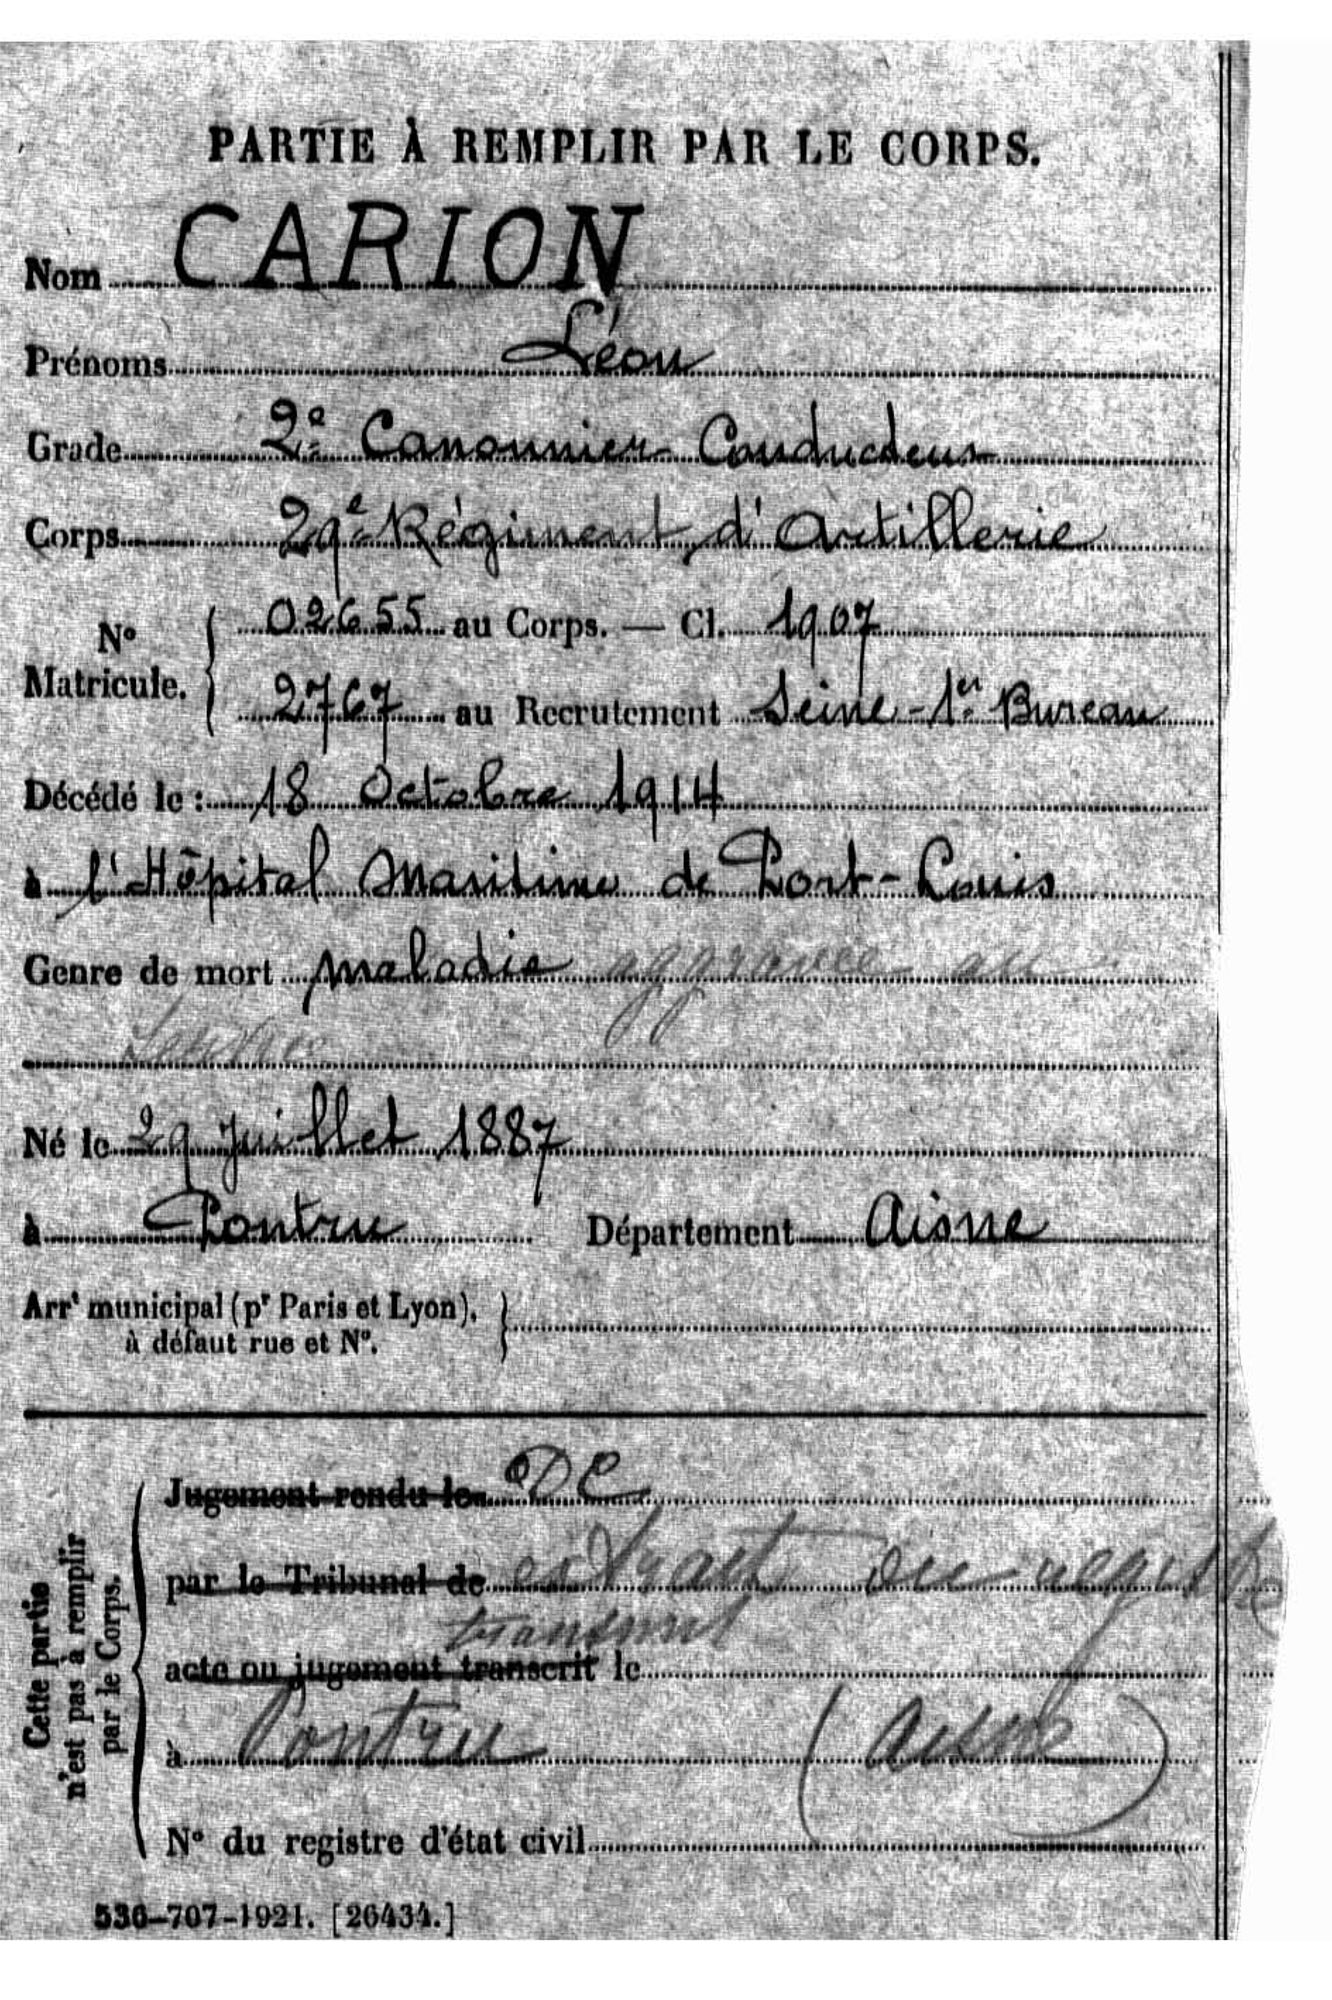 PARTIE À REMPLIR PAR LE CORPS.
Nom CARION
Prénoms Léon
Grade 2e Canonnier Conducteur
Corps 29e Régiment d'Artillerie
N° Matricule. 02655 au Corps. — Cl. 1907
2767 au Recrutement Seine - 1er Bureau
Décédé le : 18 Octobre 1914
à l'Hôpital Maritime de Port-Louis
Genre de mort maladie aggravée au
Service
Né le 29 Juillet 1887
à Pontru Département Aisne
Arrt municipal (pr Paris et Lyon),
à défaut rue et N°.
Cette partie
n'est pas à remplir
par le Corps.
Jugement rendu le DC
par le Tribunal de extrait du registre
transmit
acte ou jugement transcrit le
à Pontru (Aisne)
N° du registre d'état civil
536-707-1921. [26434.]